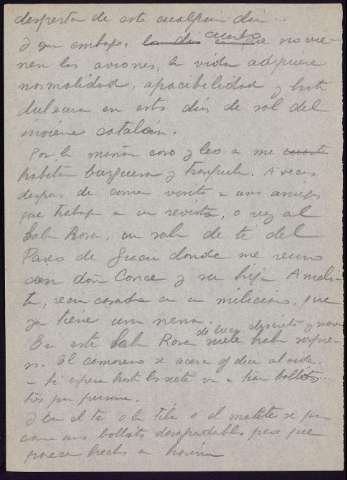 despierta de este cualquier día...
Y sin embargo, cuando no vie-
nen los aviones, la vida adquiere
normalidad, apacibilidad y hasta
dulzura en estos días de sol del
invierno catalán.
Por la mañana coso y leo a me
habitan burguesa y tranquila. A veces
después de comer visito a unos amigos
que trabajan en una revista, o voy al
Salón Rosa, un salón de te del
Paseo de Gracia donde me reuno
con don Conce y su hija Ameli-
ta, casada con un miliciano, que
ya tiene una nena.
En este Salón Rosa de luz discreta
El camarero se acerca y dice al oído.
- Si espera hasta las siete van a traer bollos.
tres por persona.
Y con el te o la tila o el malte se
comen unos bollos desagradables pero que
parecen hechos a